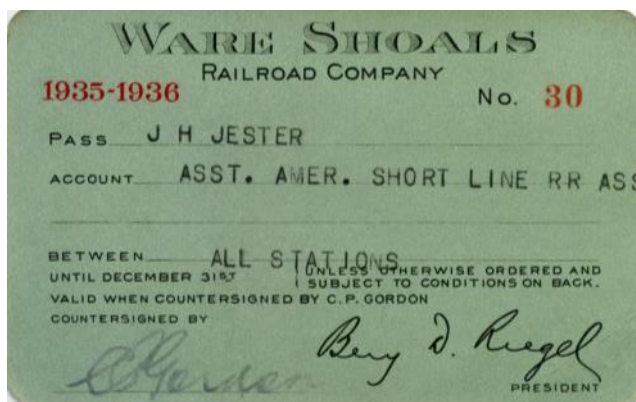 WARE SHOALS
RAILROAD COMPANY
1935-1936
No. 30
PASS J H JESTER
ACCOUNT ASST. AMER. SHORT LINE RR ASS
BETWEEN ALL STATIONS
UNTIL DECEMBER 31ST { UNLESS OTHERWISE ORDERED AND
SUBJECT TO CONDITIONS ON BACK.
VALID WHEN COUNTERSIGNED BY C.P. GORDON
COUNTERSIGNED BY
C P Gordon
Benj D. Riegel
PRESIDENT